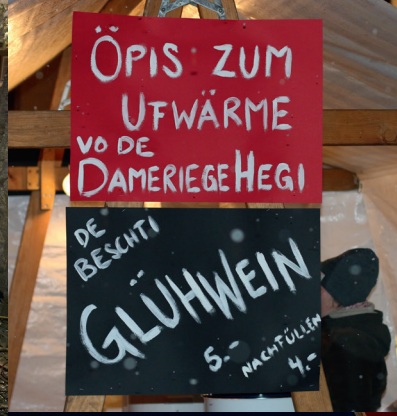 ÖPIS ZUM
UFWÄRME
VO DE
DAMERIEGE HEGI
DE
BESCHTI
GLÜHWEIN
5.-
NACHFÜLLEN
4.-